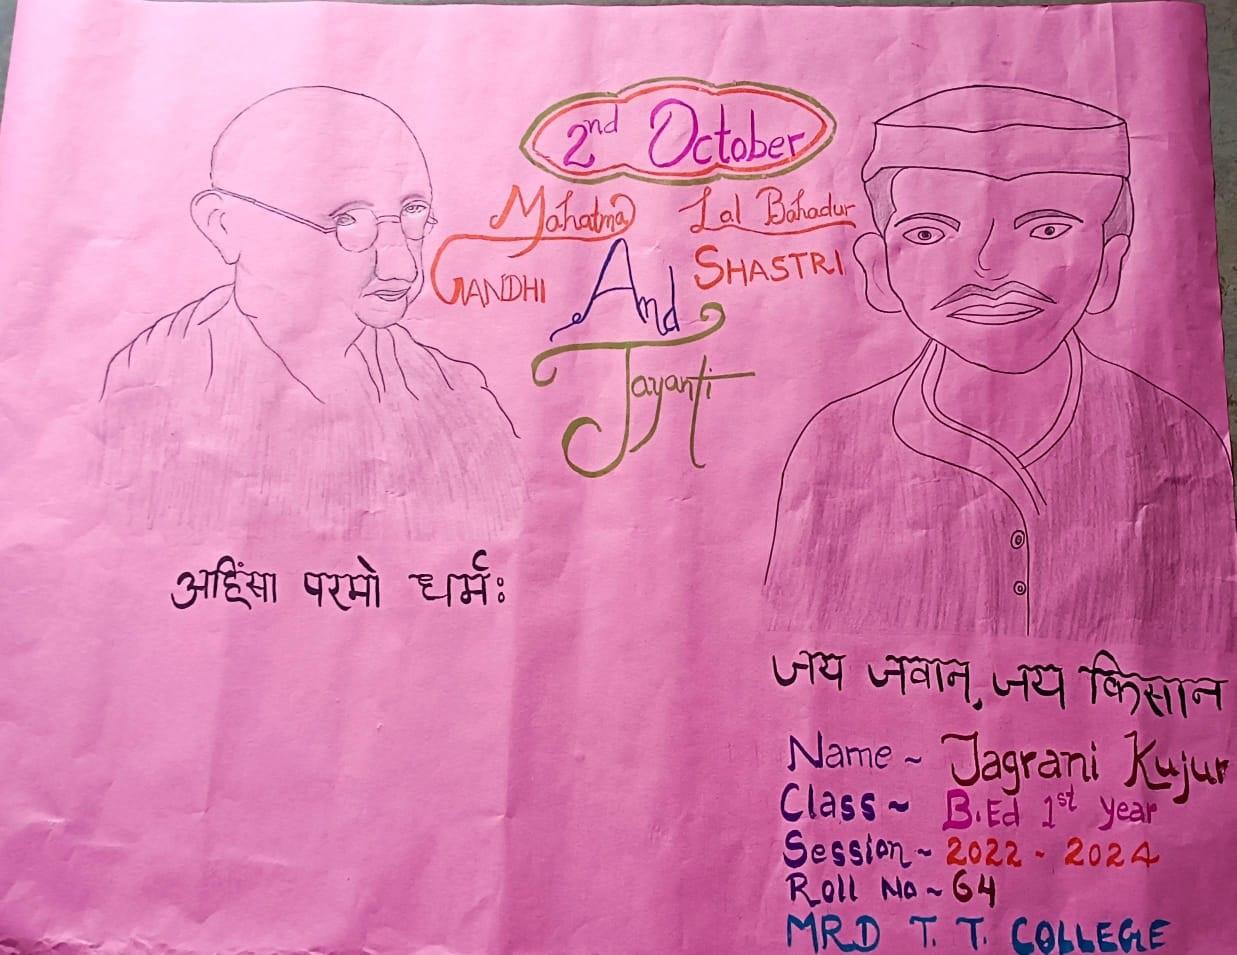 2nd October
Mahatma Lal Bahadur
GANDHI And SHASTRI
Jayanti
अहिंसा परमो धर्मः
जय जवान, जय किसान
Name ~ Jagrani Kujur
Class ~ B.Ed 1st Year
Session ~ 2022 - 2024
Roll No ~ 64
MRD T. T. COLLEGE